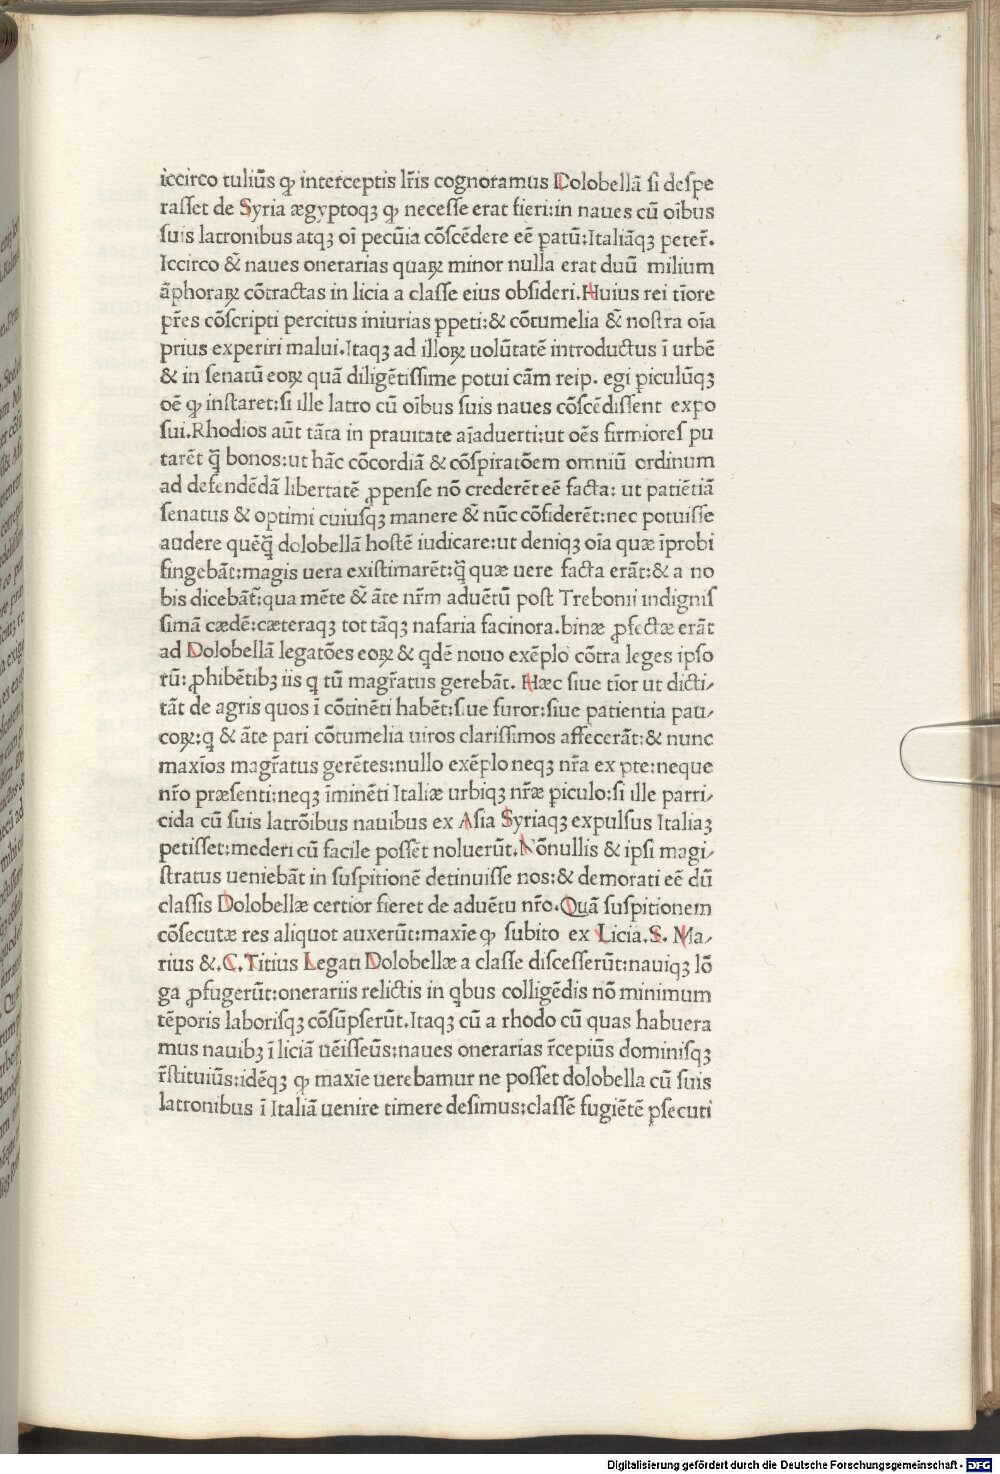 iccirco tuliūs ꝙ interceptis lr̄is cognoramus Dolobellā si despe
rasset de Syria ægyptoqꝫ ꝙ necesse erat fieri:in naues cū oībus
suis latronibus atqꝫ oī pecūia cōscēdere eē patū:Italiāqꝫ peter̄.
Iccirco &̄ naues onerarias quaꝝ minor nulla erat duū milium
āphoraꝝ cōtractas in licia a classe eius obsideri.Huius rei tīore
pr̄es cōscripti percitus iniurias ꝑpeti:& cōtumelia &̄ nostra oīa
prius experiri malui.Itaqꝫ ad illoꝝ uolūtatē introductus ī urbē
& in senatū eoꝝ quā diligētissime potui cām reip. egi piculūqꝫ
oē ꝙ instaret:si ille latro cū oībus suis naues cōscēdissent expo
sui.Rhodios aūt tāta in prauitate aīaduerti:ut oēs firmiores pu
tarēt q̄ bonos:ut hāc cōcordiā & cōspiratōem omniū ordinum
ad defendēdā libertatē ꝓpense nō crederēt eē facta: ut patiētiā
senatus & optimi cuiusqꝫ manere &̄ nūc cōfiderēt:nec potuisse
audere quēq̄ dolobellā hostē iudicare:ut deniqꝫ oīa quæ īprobi
fingebāt:magis uera existimarēt:q̄ quæ uere facta erāt:& a no
bis dicebāt:qua mēte &̄ āte nr̄m aduētū post Trebonii indignis
simā cædē:cæteraqꝫ tot tāqꝫ nafaria facinora.binæ ꝓfectæ erāt
ad Dolobellā legatōes eoꝝ & qdē nouo exēplo cōtra leges ipso
rū:ꝓhibētibꝫ iis q tū magr̄atus gerebāt. Hæc siue tīor ut dicti/
tāt de agris quos ī cōtinēti habēt:siue furor:siue patientia pau/
coꝝ:q & āte pari cōtumelia uiros clarissimos affecerāt:& nunc
maxīos magr̄atus gerētes:nullo exēplo neqꝫ nr̄a ex pte:neque
nr̄o præsenti:neqꝫ īminēti Italiæ urbiqꝫ nr̄æ piculo:si ille parri/
cida cū suis latrōibus nauibus ex Asia Syriaqꝫ expulsus Italiaꝫ
petisset:mederi cū facile possēt noluerūt.Nōnullis & ipsi magi/
stratus ueniebāt in suspitionē detinuisse nos:& demorati eē dū
classis Dolobellæ certior fieret de aduētu nr̄o.Quā suspitionem
cōsecutæ res aliquot auxerūt:maxīe ꝙ subito ex Licia.S. Ma/
rius &.C.Titius Legati Dolobellæ a classe discesserūt:nauiqꝫ lō
ga ꝓfugerūt:onerariis relictis in qbus colligēdis nō minimum
tēporis laborisqꝫ cōsūpserūt.Itaqꝫ cū a rhodo cū quas habuera
mus nauibꝫ ī liciā uēisseūs:naues onerarias r̄cepiūs dominisqꝫ
r̄stituiūs:idēqꝫ ꝙ maxīe uerebamur ne posset dolobella cū suis
latronibus ī Italiā uenire timere desimus:classē fugiētē ꝑsecuti
Digitalisierung gefördert durch die Deutsche Forschungsgemeinschaft - DFG